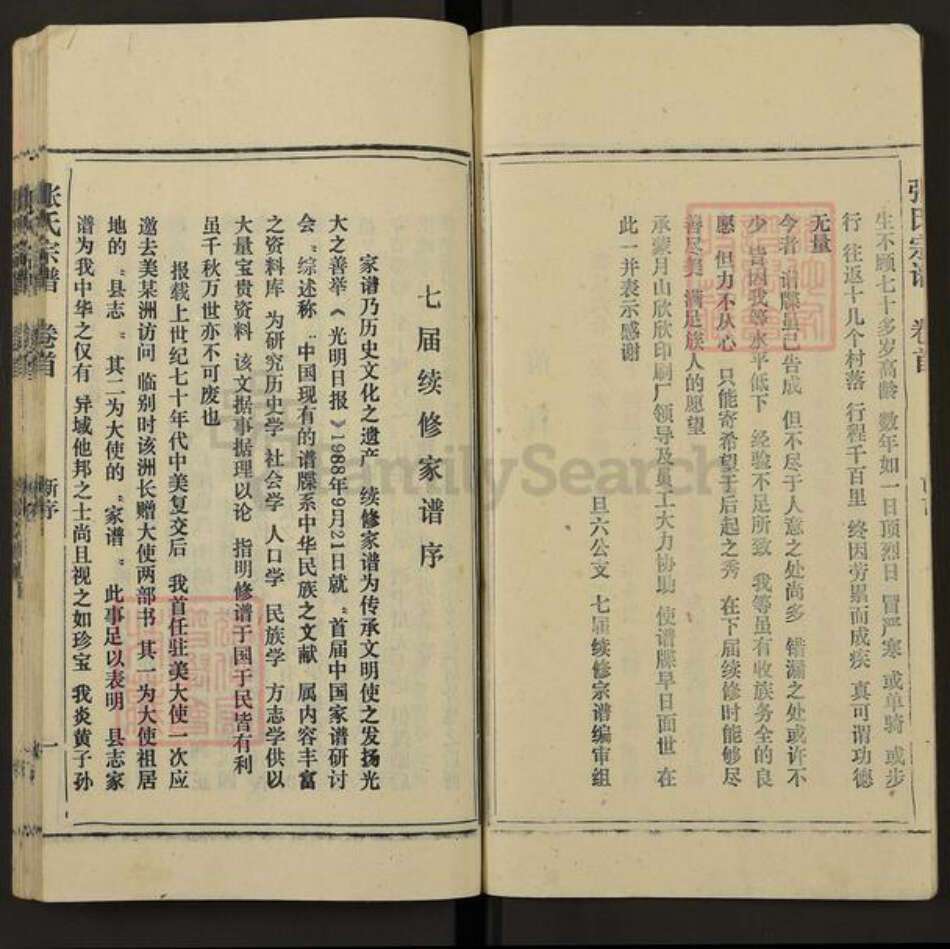 张氏宗谱 卷首
生不顾七十多岁高龄 数年如一日顶烈日 冒严寒 或单骑 或步
行 往返十几个村落 行程千百里 终因劳累而成疾 真可谓功德
无量
今者 谱牒虽已告成 但不尽于人意之处尚多 错漏之处或许不
少 皆因我等水平低下 经验不足所致 我等虽有收族务全的良
愿 但力不从心 只能寄希望于后起之秀 在下届续修时能够尽
善尽美 满足族人的愿望
承蒙月山欣欣印刷厂领导及员工大力协助 使谱牒早日面世 在
此一并表示感谢
旦六公支 七届续修宗谱编审组
七届续修家谱序
家谱乃历史文化之遗产 续修家谱为传承文明使之发扬光
大之善举《光明日报》1988年9月21日就“首届中国家谱研讨
会”综述称“中国现有的谱牒系中华民族之文献 属内容丰富
之资料库 为研究历史学 社会学 人口学 民族学 方志学供以
大量宝贵资料 该文据事据理以论 指明修谱于国于民皆有利
虽千秋万世亦不可废也
报载上世纪七十年代中美复交后 我首任驻美大使一次应
邀去美某洲访问 临别时该洲长赠大使两部书 其一为大使祖居
地的“县志”其二为大使的“家谱”此事足以表明 县志家
谱为我中华之仅有 异域他邦之士尚且视之如珍宝 我炎黄子孙
张氏宗谱 卷首 新序 一
FamilySearch